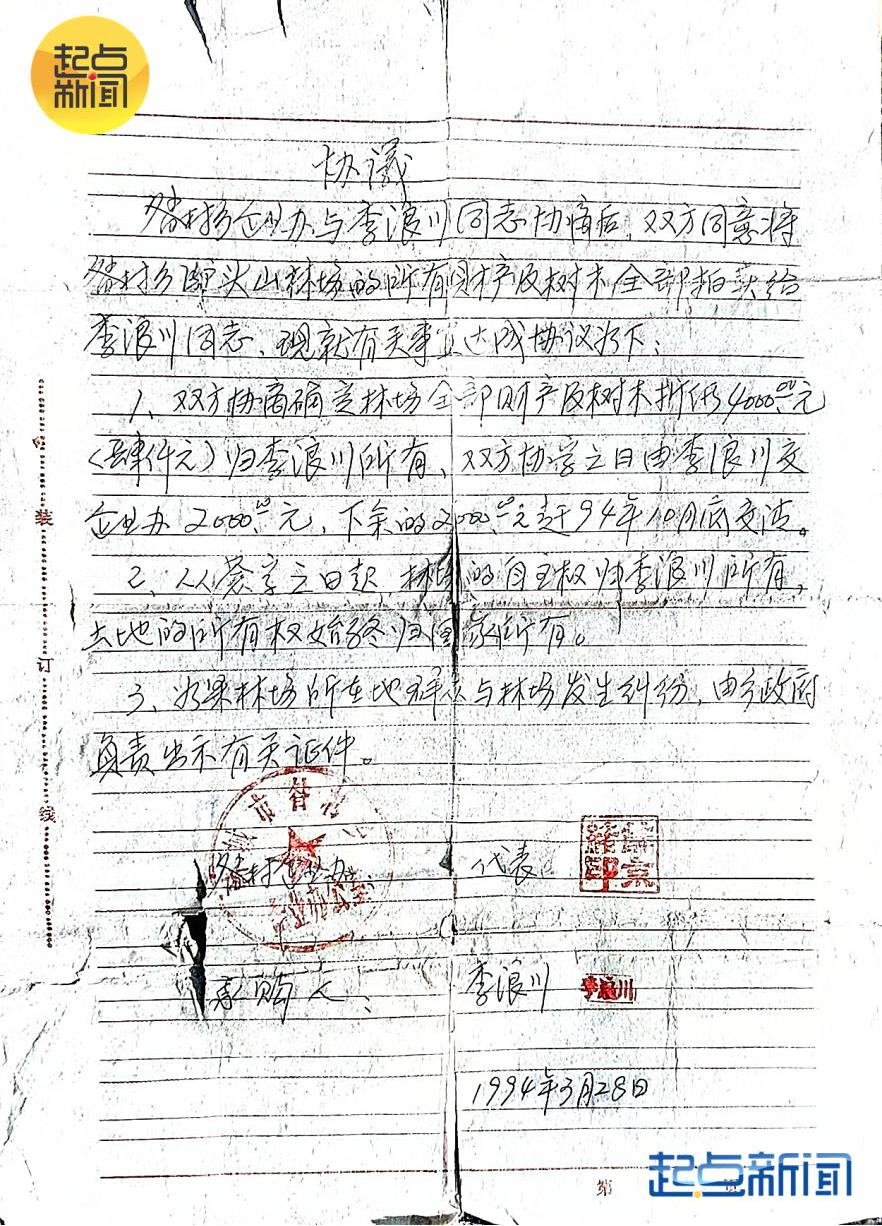 起点
新闻
协议
昝村乡企业办与李浪川同志协商后，双方同意将
昝村乡 头山林场的所有财产及树木全部拍卖给
李浪川同志、现就有关事宜达成协议如下：
1、双方协商确定林场全部财产及树木折价4000.00元
（肆仟元）归李浪川所有、双方协字之日由李浪川交
企业办2000.00元，下余的2000.00元于94年10月底交清。
2、从签字之日起，林场的自主权归李浪川所有，
土地的所有权始终归国家所有。
3、如果林场所在地群众与林场发生纠纷，由乡政府
负责出示有关证件。
装
订
线
市昝村
昝村企业办
代表：
印
承购人：
李浪川
李浪川
1994年3月28日
第 页
起点新闻